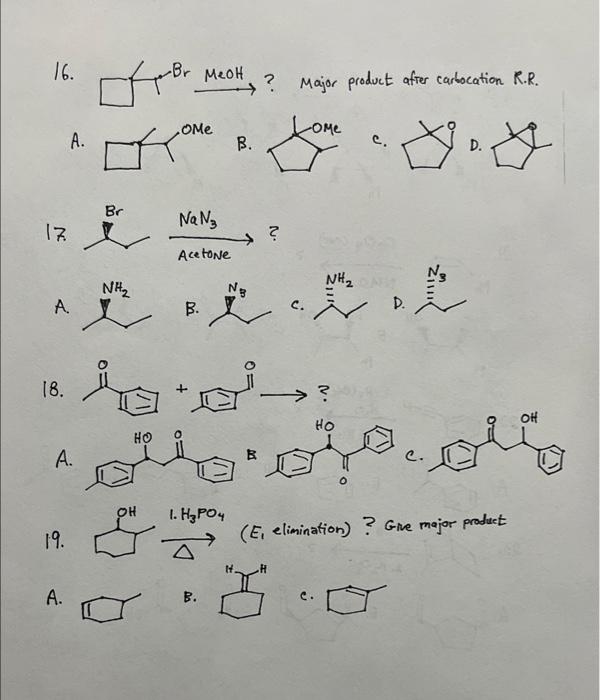 16. Br MeOH ? Major product after carbocation R.R.
A. OMe B. OMe C. O D. O
17. Br NaN3 ?
Acetone
A. NH2 B. N3 C. NH2 D. N3
18. O + O ?
A. HO O B HO O C. O OH
19. OH 1. H3PO4 (E1 elimination) ? Give major product
Δ
A. B. H H C.